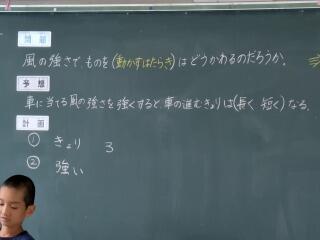 問題
風の強さで ものを(動かすはたらき)は どうかわるのだろうか。
予想
車に当てる風の強さを強くすると、車の進むきょりは(長く 短く)なる。
計画
① きょり 3
② 強い